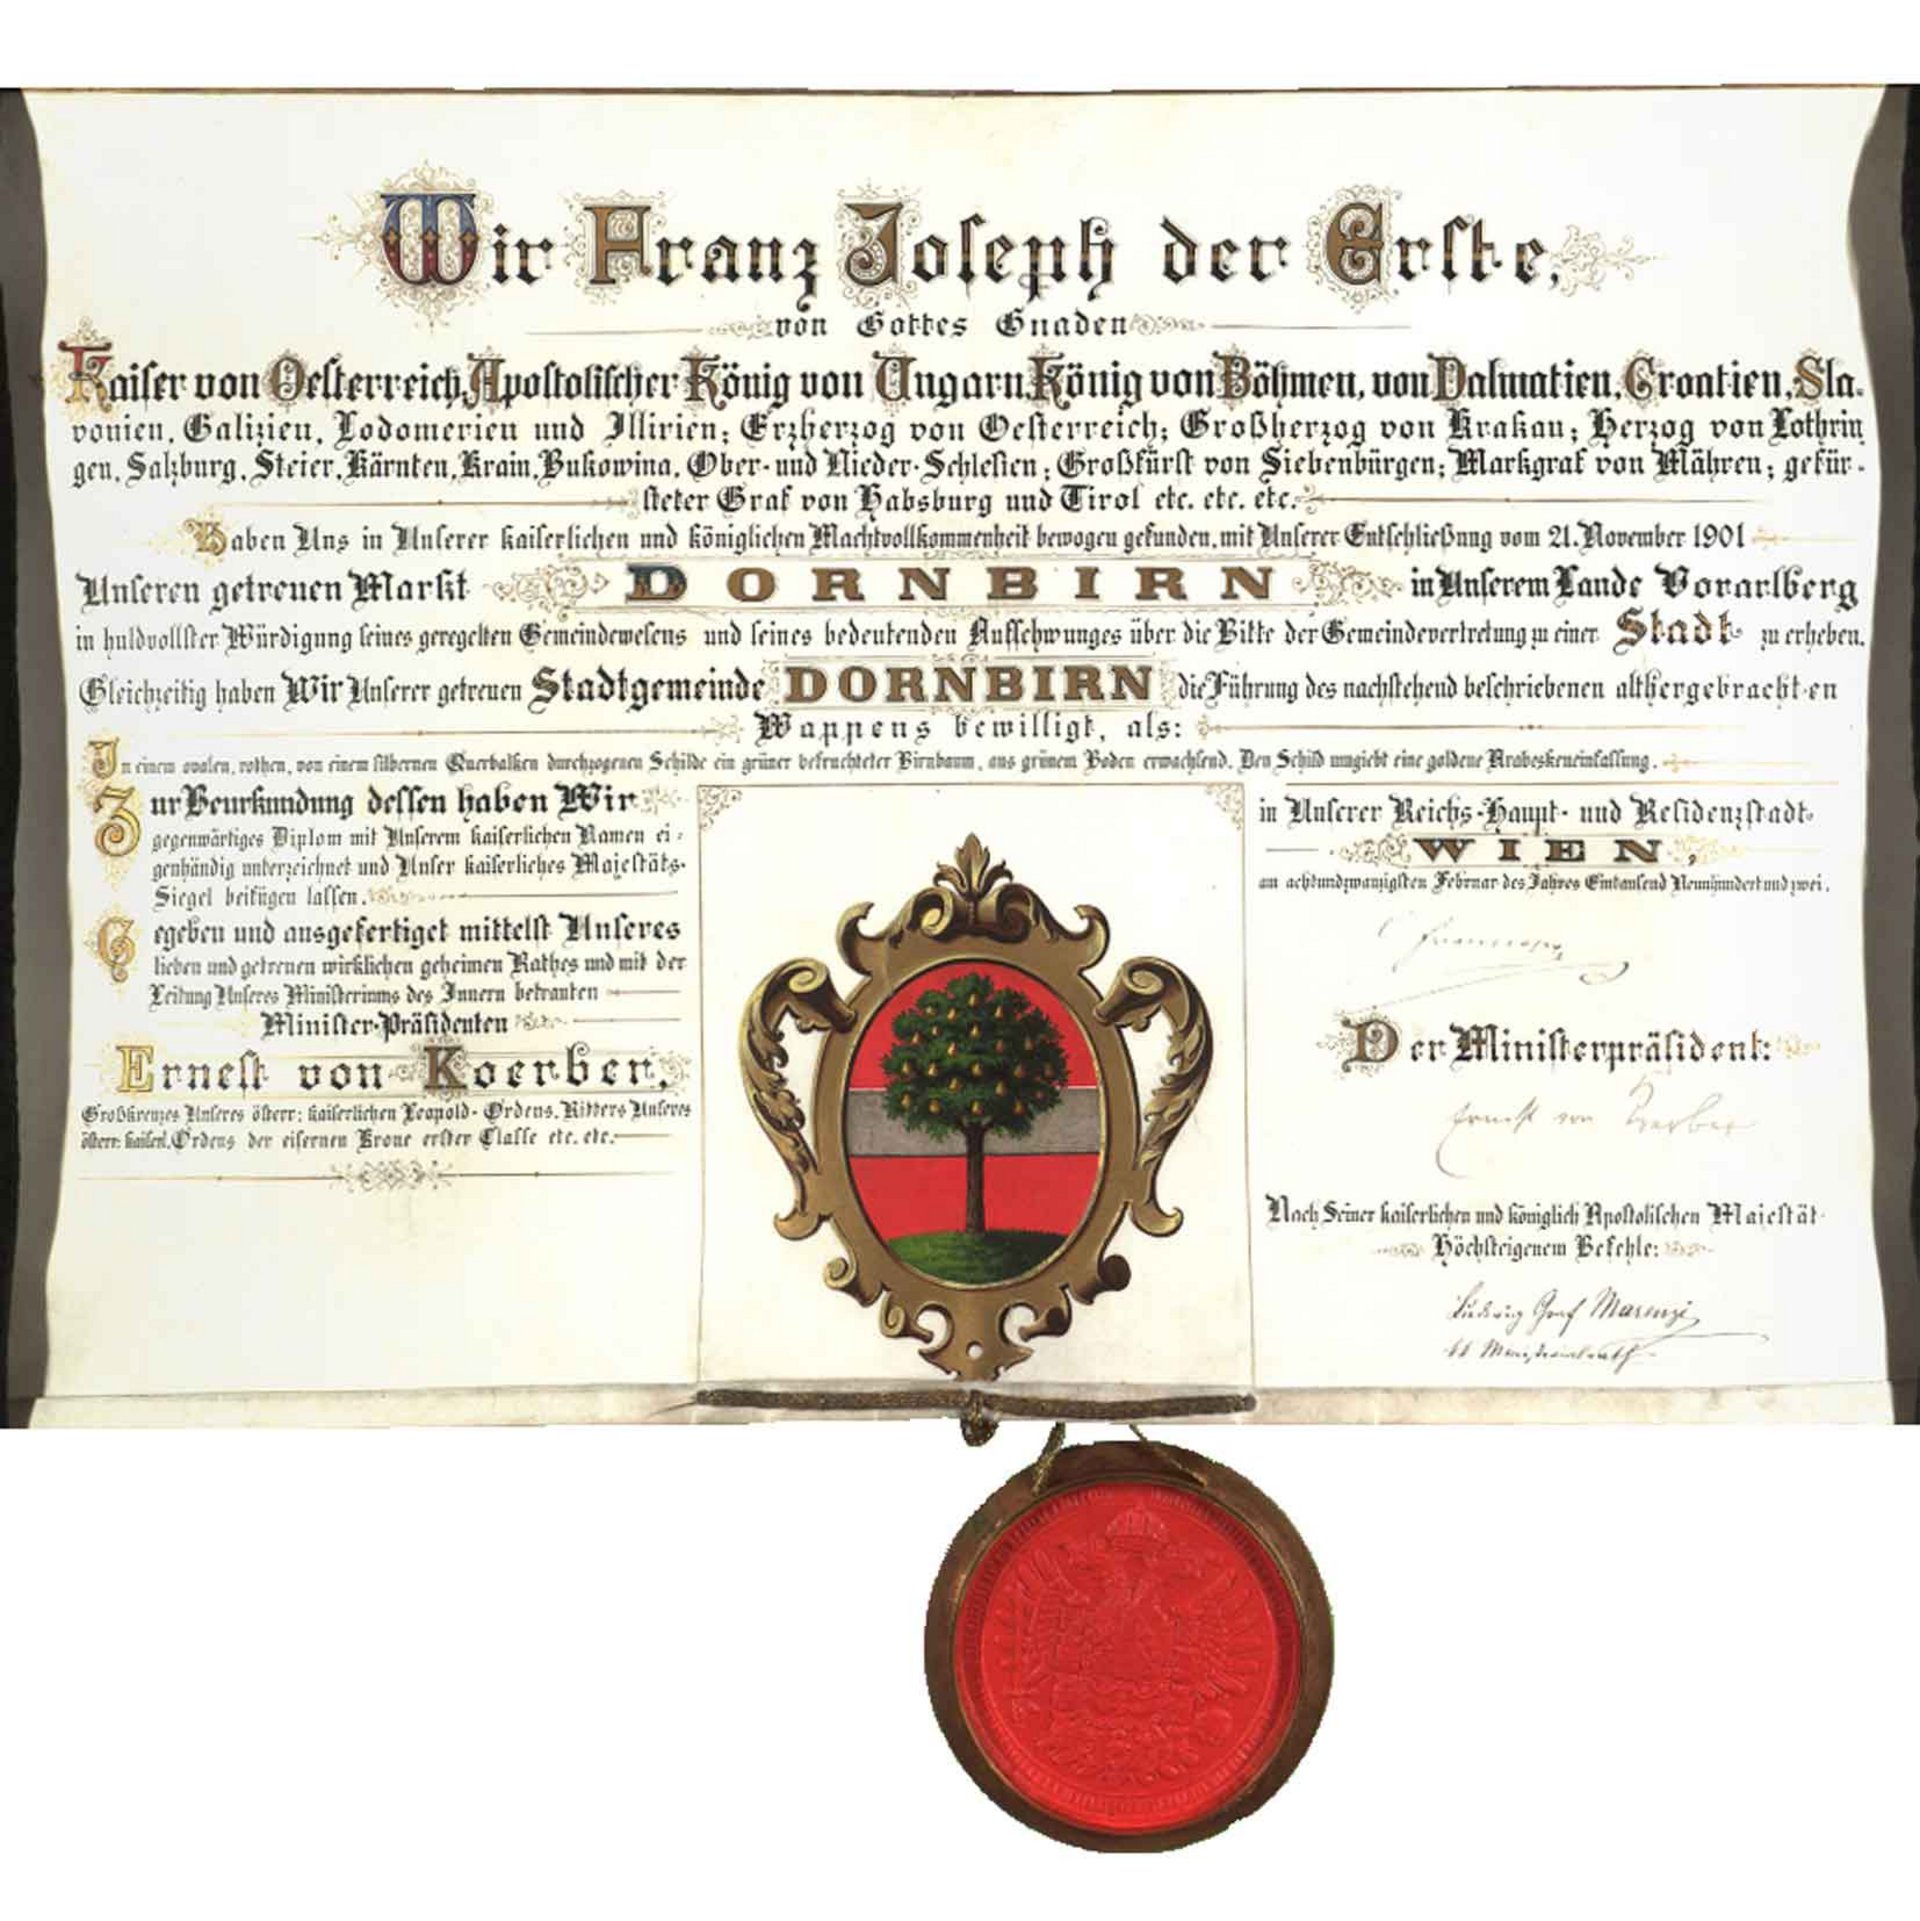 Wir Franz Joseph der Erste,
von Gottes Gnaden
Kaiser von Oesterreich, Apostolischer König von Ungarn, König von Böhmen, von Dalmatien, Croatien, Sla-
vonien, Galizien, Lodomerien und Illirien; Erzherzog von Oesterreich; Großherzog von Krakau; Herzog von Lothrin
gen, Salzburg, Steier, Kärnten, Krain, Bukowina, Ober- und Nieder-Schlesien; Großfürst von Siebenbürgen; Markgraf von Mähren; gefür-
steter Graf von Habsburg und Tirol etc. etc. etc.
Haben Uns in Unserer kaiserlichen und königlichen Machtvollkommenheit bewogen gefunden, mit Unserer Entschließung vom 21. November 1901
Unseren getreuen Markt DORNBIRN in Unserem Lande Vorarlberg
in huldvollster Würdigung seines geregelten Gemeindewesens und seines bedeutenden Aufschwunges über die Bitte der Gemeindevertretung zu einer Stadt zu erheben.
Gleichzeitig haben Wir Unserer getreuen Stadtgemeinde DORNBIRN die Führung des nachstehend beschriebenen althergebrachten
Wappens bewilligt, als:
In einem ovalen, rothen, von einem silbernen Querbalken durchzogenen Schilde ein grüner befruchteter Birnbaum, aus grünem Boden erwachsend. Den Schild umgiebt eine goldene Arabeskeneinfassung.
Zur Beurkundung dessen haben Wir
gegenwärtiges Diplom mit Unserem kaiserlichen Namen ei-
genhändig unterzeichnet und Unser kaiserliches Majestäts-
Siegel beifügen lassen.
Gegeben und ausgefertiget mittelst Unseres
lieben und getreuen wirklichen geheimen Rathes und mit der
Leitung Unseres Ministeriums des Innern betrauten
Minister-Präsidenten
Ernest von Koerber,
Großkreuzes Unseres österr: kaiserlichen Leopold-Ordens, Ritters Unseres
österr: kaiserl. Ordens der eisernen Krone erster Classe etc. etc.
in Unserer Reichs-Haupt- und Residenzstadt
WIEN,
am achtundzwanzigsten Februar des Jahres Eintausend Neunhundert und zwei.
Der Ministerpräsident:
Ernest von Koerber
Nach Seiner kaiserlichen und königlich Apostolischen Majestät
Höchsteigenem Befehle:
Ludwig Graf Marenzi
kk Ministerialrath